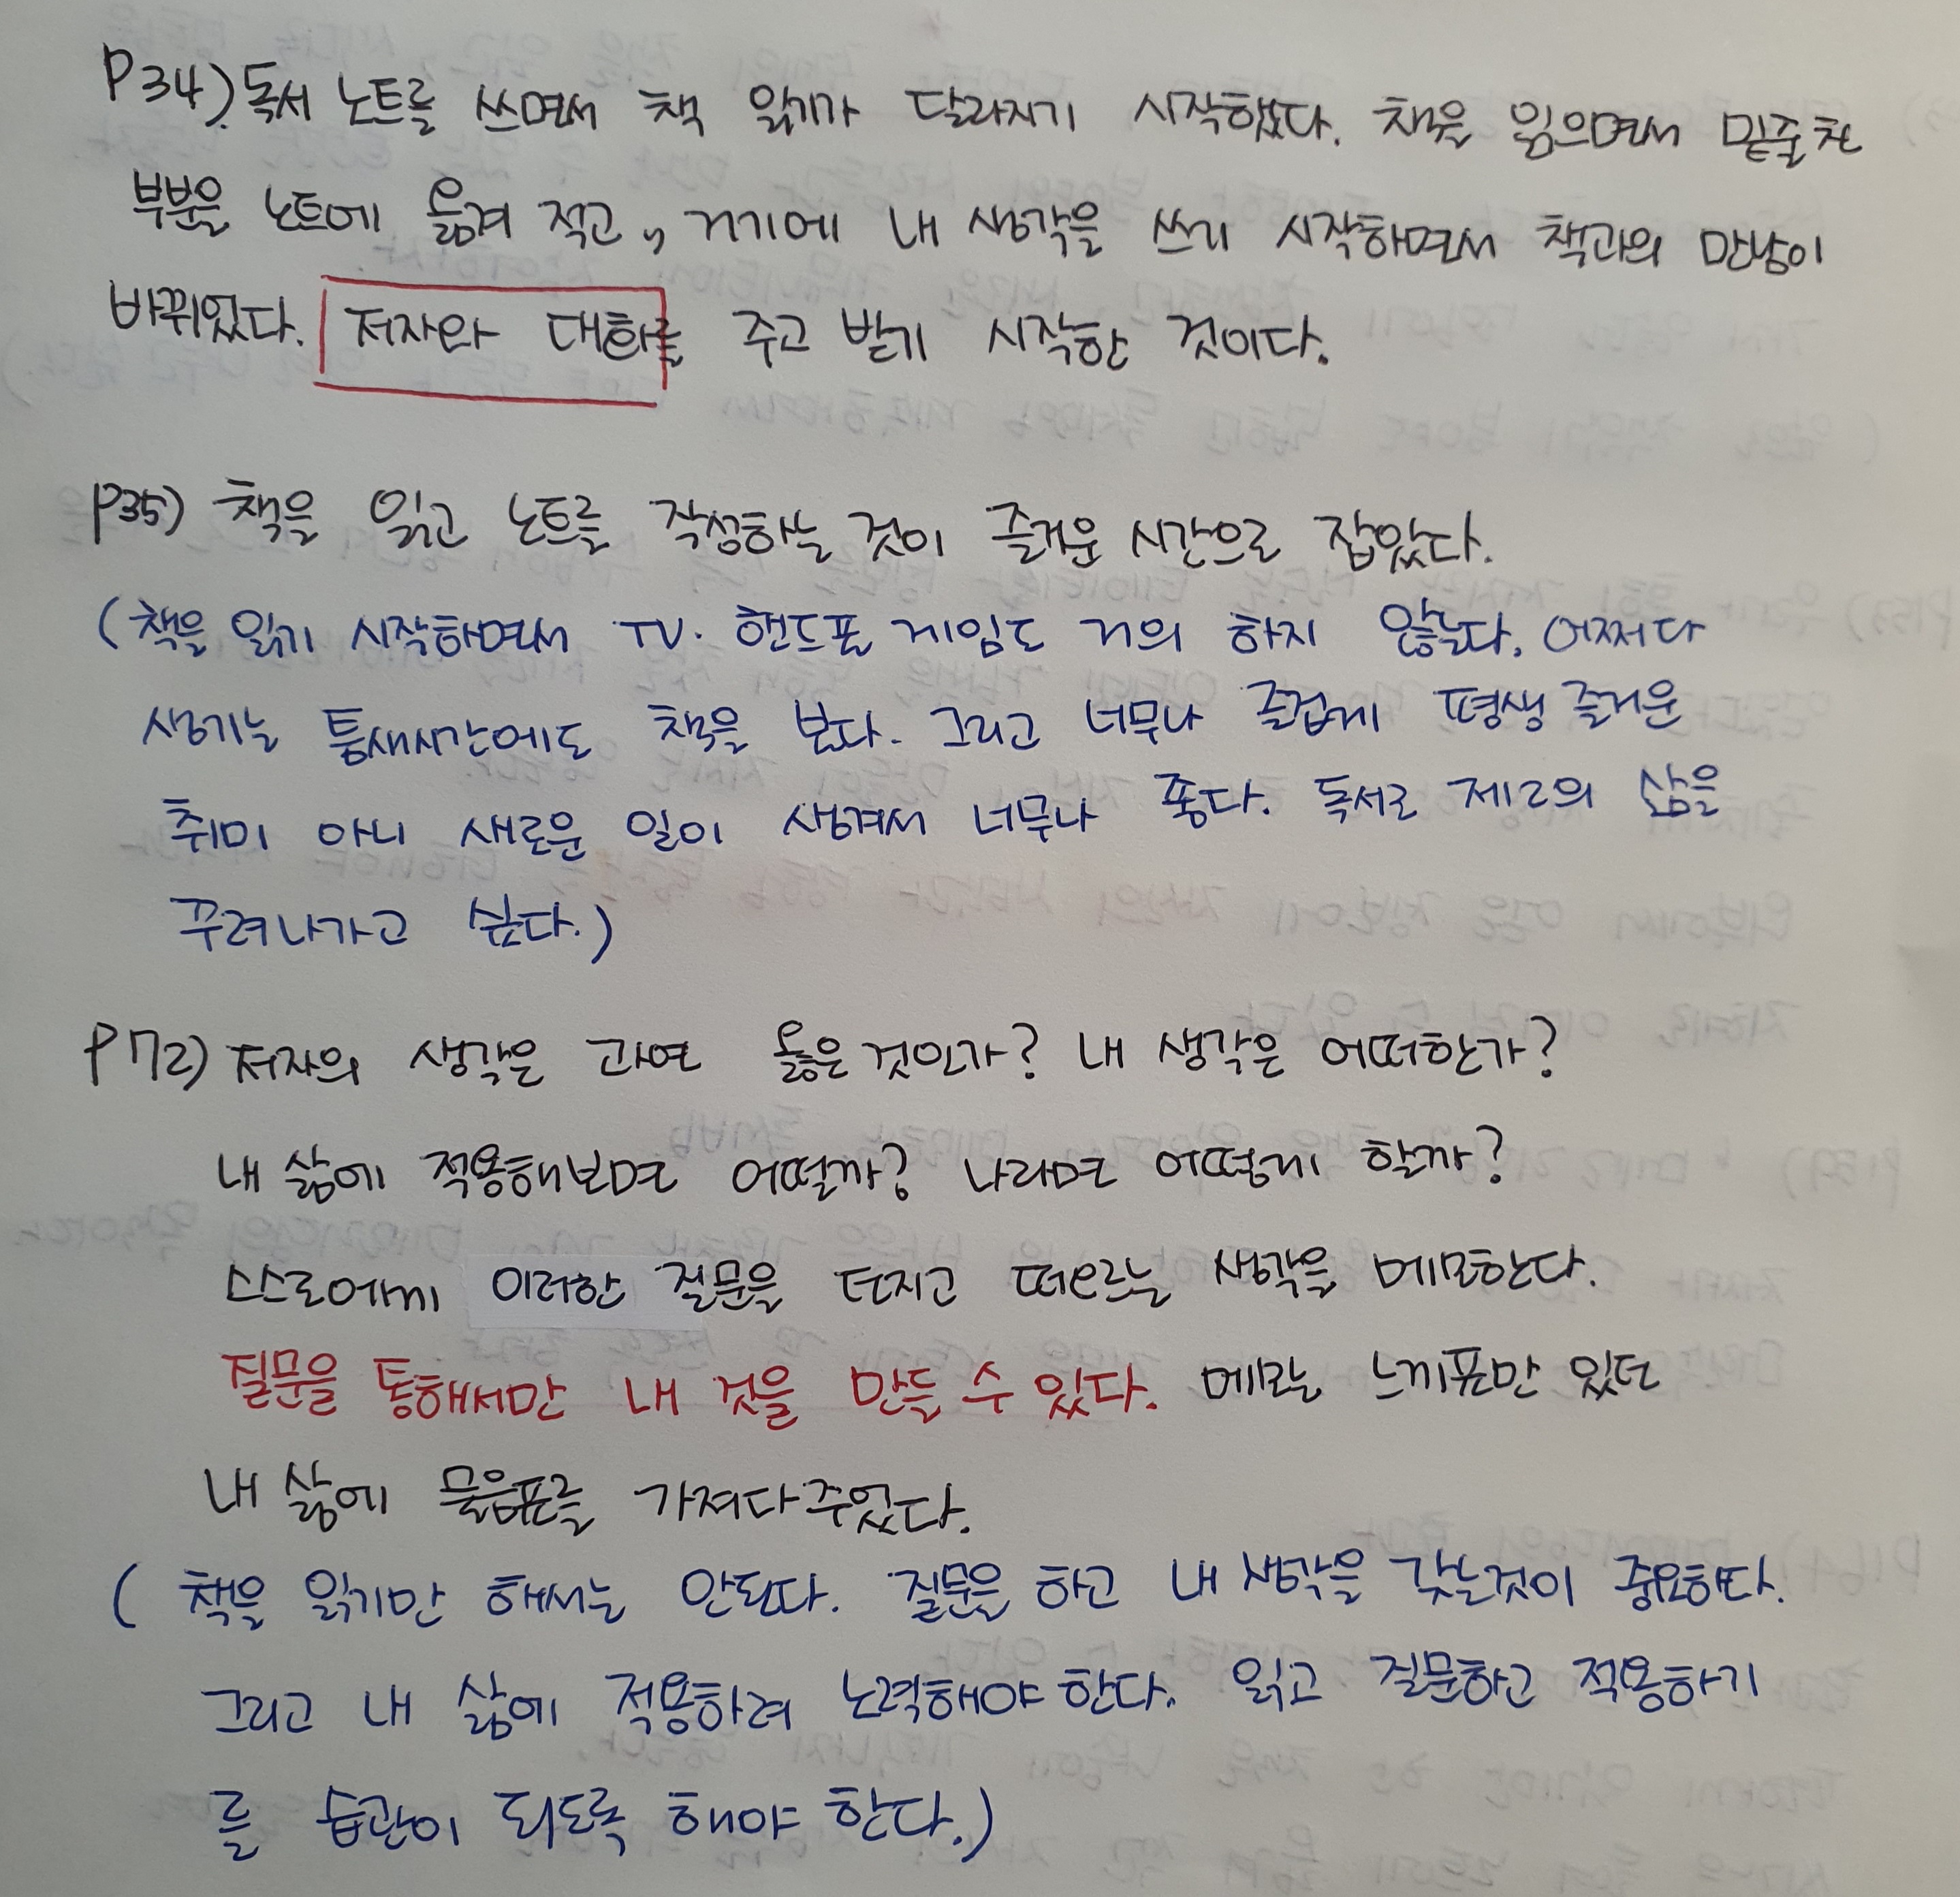 P34) 독서 노트를 쓰면서 책 읽기가 달라지기 시작했다. 책을 읽으면서 밑줄친
부분을 노트에 옮겨 적고, 거기에 내 생각을 쓰기 시작하면서 책과의 만남이
바뀌었다. 저자와 대화를 주고 받기 시작한 것이다.
P35) 책을 읽고 노트를 작성하는 것이 즐거운 시간으로 잡았다.
(책을 읽기 시작하면서 TV. 핸드폰 게임도 거의 하지 않는다. 어쩌다
생기는 틈새시간에도 책을 본다. 그리고 너무나 즐겁게 평생 즐거운
취미 아니 새로운 일이 생겨서 너무나 좋다. 독서로 제2의 삶을
꾸려나가고 싶다.)
P72) 저자의 생각은 과연 옳은 것인가? 내 생각은 어떠한가?
내 삶에 적용해보면 어떨까? 나라면 어떻게 할까?
스스로에게 이러한 질문을 던지고 떠오르는 생각을 메모한다.
질문을 통해서만 내 것을 만들 수 있다. 메모는 느낌표만 있던
내 삶에 물음표를 가져다 주었다.
( 책을 읽기만 해서는 안된다. 질문을 하고 내 생각을 갖는것이 중요하다.
그리고 내 삶에 적용하려 노력해야 한다. 읽고 질문하고 적용하기
를 습관이 되도록 해야 한다.)